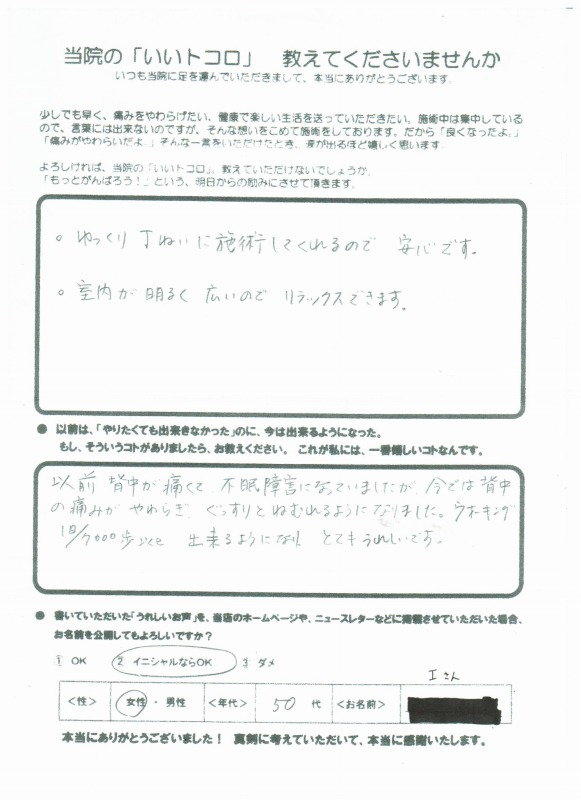 当院の「いいトコロ」 教えてくださいませんか
いつも当院に足を運んでいただきまして、本当にありがとうございます。
少しでも早く、痛みをやわらげたい、健康で楽しい生活を送っていただきたい。施術中は集中している
ので、言葉には出来ないのですが、そんな想いをこめて施術をしております。だから「良くなったよ。」
「痛みがやわらいだよ。」そんな一言をいただけたとき、涙が出るほど嬉しく思います。
よろしければ、当院の「いいトコロ」、教えていただけないでしょうか。
「もっとがんばろう!」という、明日からの励みにさせて頂きます。
。ゆっくり 丁ねいに施術してくれるので 安心です。
。室内が 明るく 広いので リラックスできます。
● 以前は、「やりたくても出来きなかった」のに、今は出来るようになった。
もし、そういうコトがありましたら、お教えください。 これが私には、一番嬉しいコトなんです。
以前 背中が痛くて、不眠障害になっていましたが、今では背中
の痛みが やわらぎ、ぐっすりとねむれるようになりました。ウオーキング
1日/7000歩以上 出来るようになり とてもうれしいです。
● 書いていただいた「うれしいお声」を、当店のホームページや、ニュースレターなどに掲載させていただいた場合、
お名前を公開してもよろしいですか?
① OK ② イニシャルならOK 3 ダメ
Iさん
<性> 女性 ・ 男性 <年代> 50 代 <お名前>
本当にありがとうございました! 真剣に考えていただいて、本当に感謝いたします。